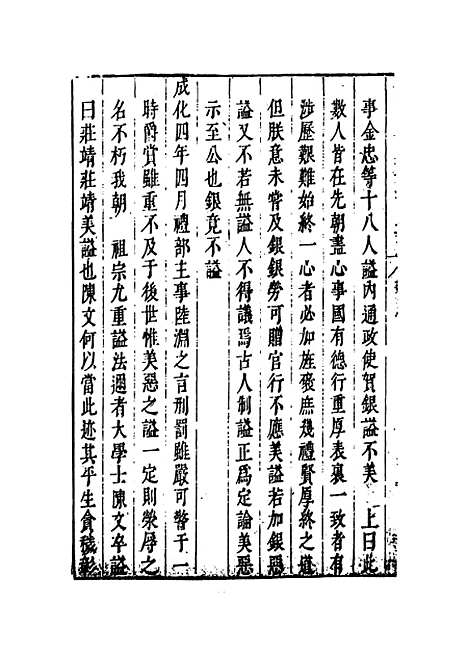 事金忠等十八人謚內通政使賀銀謚不美 上曰此
數人皆在先朝盡心事國有德行重厚表裏一致者有
涉歷艱難始終一心者必加旌褒庶幾禮賢厚終之道
但朕意未嘗及銀銀勞可贈官行不應美謚若加銀惡
謚又不若無謚人不得議焉古人制謚正為定論美惡
示至公也銀竟不謚
成化四年四月禮部主事陸淵之言刑罰雖嚴可警于一
時爵賞雖重不及于後世惟美惡之謚一定則榮辱之
名不朽我朝 祖宗尤重謚法邇者大學士陳文卒謚
曰莊靖莊靖美謚也陳文何以當此跡其平生貪穢彰